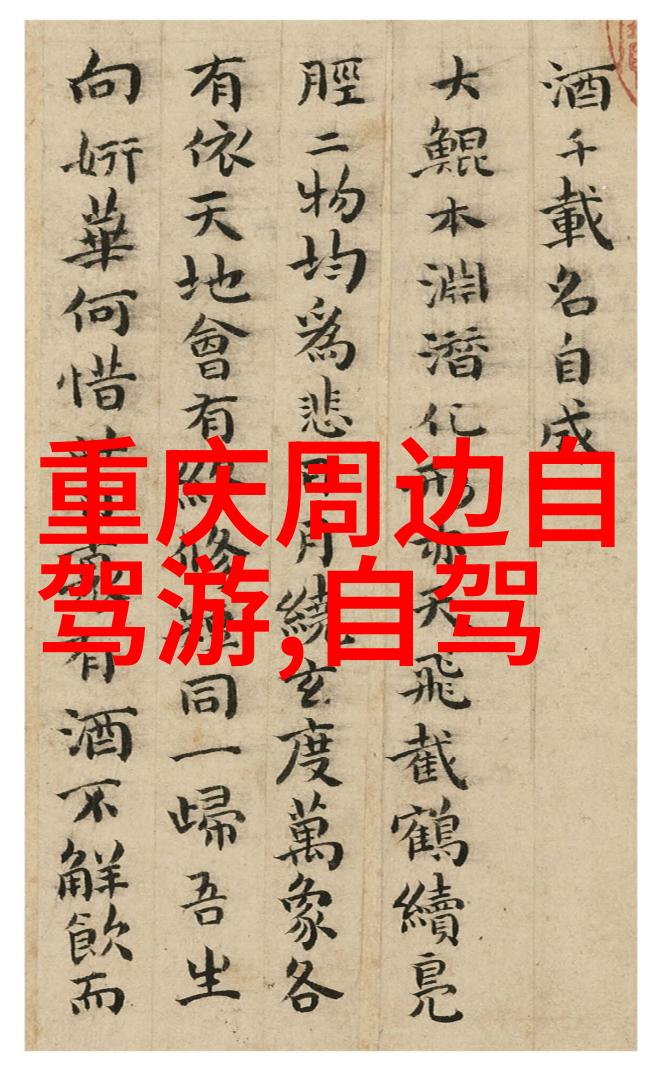 酒千載名自成
大鯤本淵潛化形亦天飛截鶴續鳧
脛二物均爲悲日月繞玄度萬象各
有依天地會有終修短同一歸吾生
向妍華何惜有酒不解飲而
重庆周边自
驾游,自驾